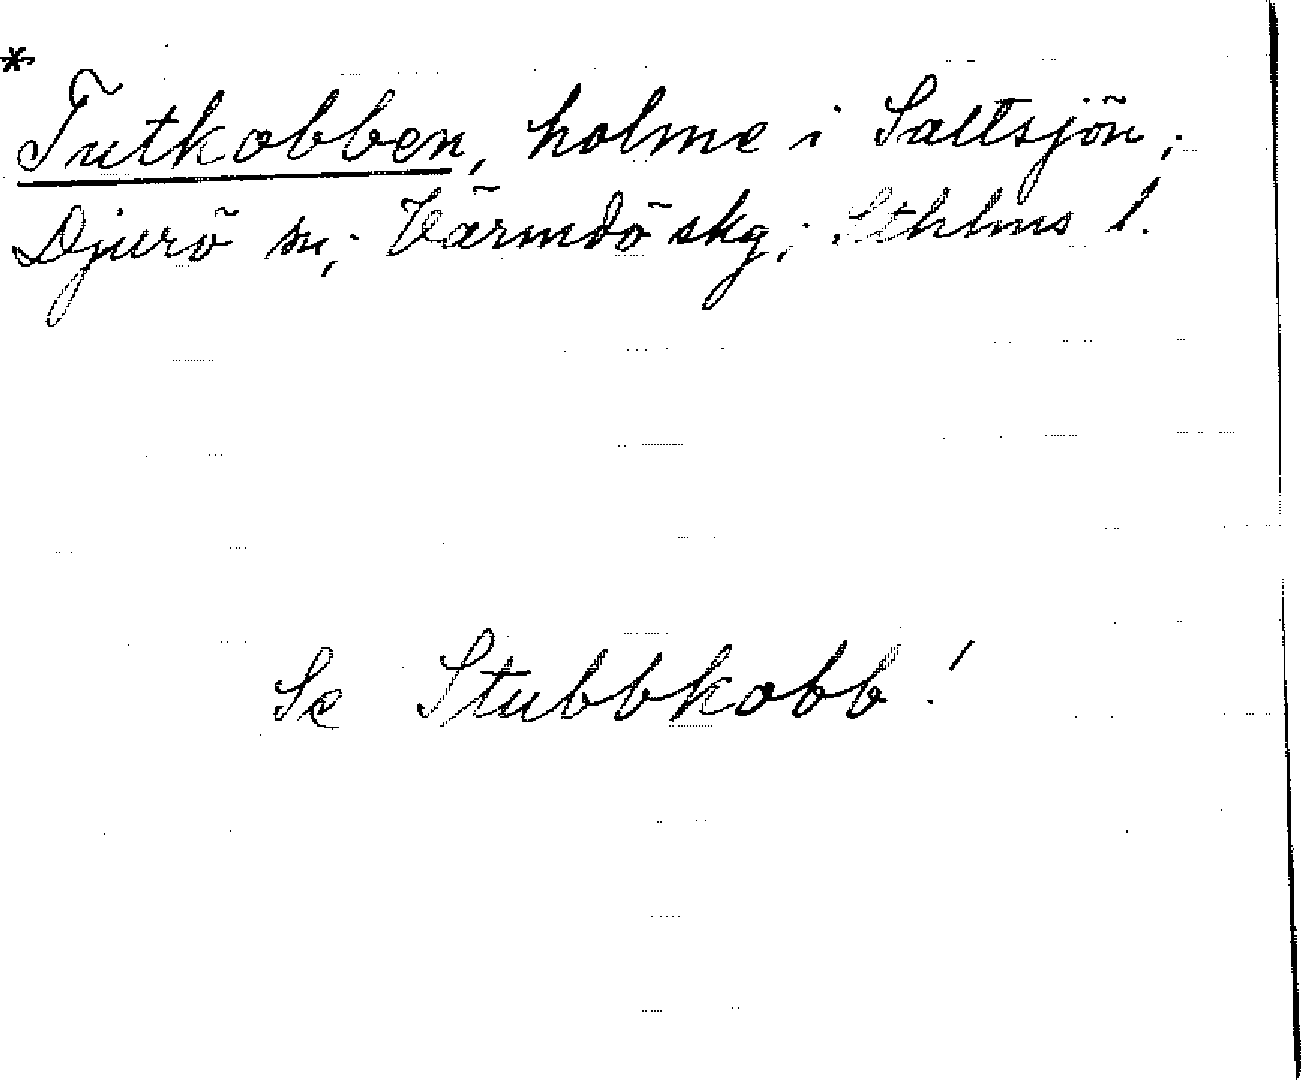 *
Tutkobben, holme i Saltsjön;
Djurö sn; Värmdö skg; Sthlms l.
Se Stubbkobb!